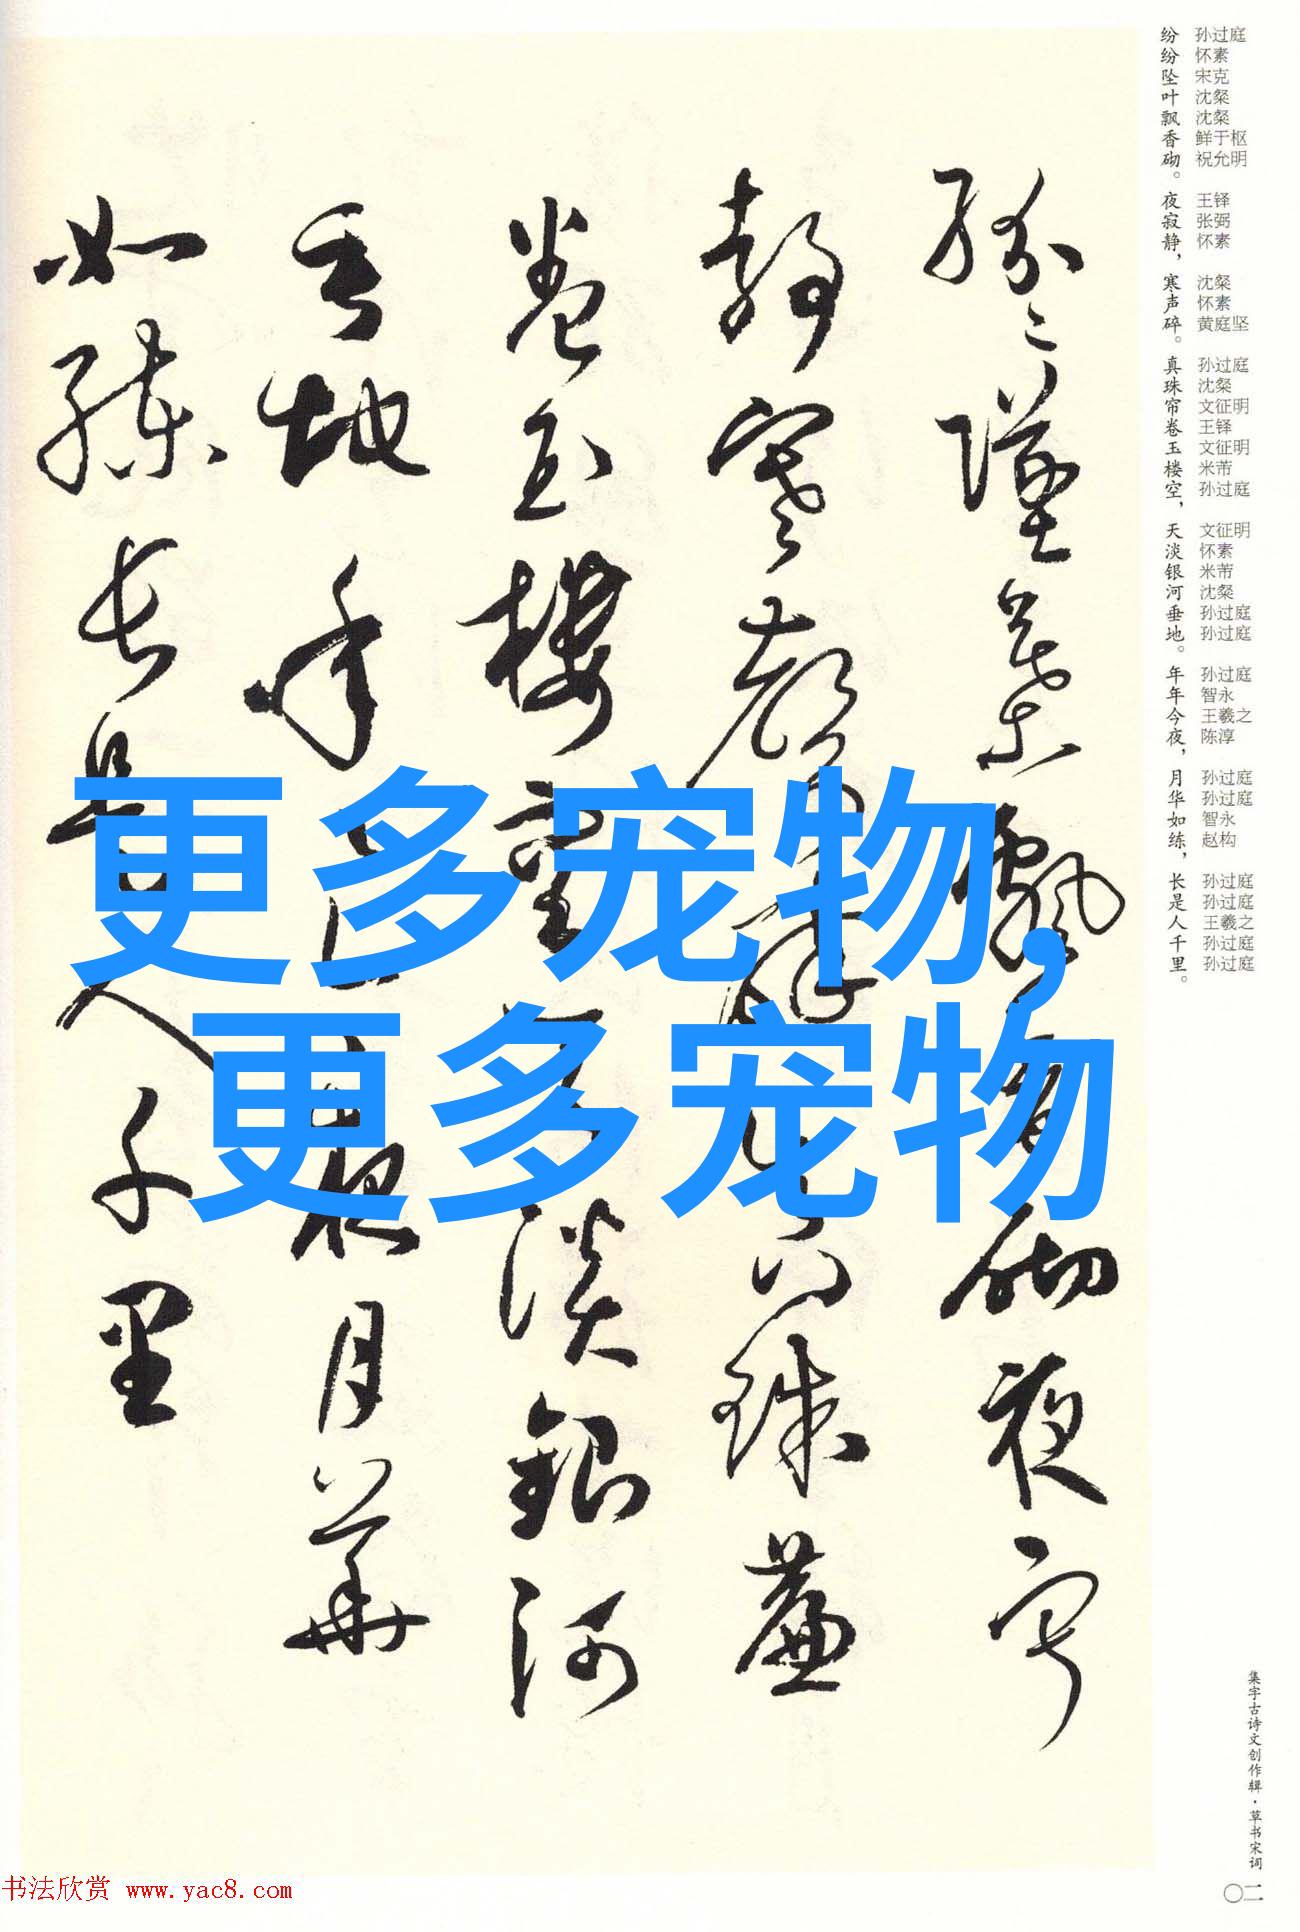 纷纷坠叶飘香砌。夜寂静，寒声碎。真珠帘卷玉楼空，天淡银河垂地。年年今夜，月华如练，长是人千里。
孙过庭 怀素 宋克 沈粲 沈粲 鲜于枢 祝允明 王铎 张弼 怀素 沈粲 怀素 黄庭坚 孙过庭 沈粲 文征明 王铎 文征明 米芾 孙过庭 文征明 怀素 米芾 沈粲 孙过庭 孙过庭 孙过庭 智永 王羲之 陈淳 孙过庭 孙过庭 智永 赵构 孙过庭 孙过庭 王羲之 孙过庭 孙过庭
纷〻坠叶飘香砌夜寂
静寒声碎真珠帘
卷玉楼空天淡银河
垂地年〻今夜月华
如练长是人千里
更多宠物,
更多宠物
集字古诗文创作辑·草书宋词
〇二
书法欣赏 www.yac8.com